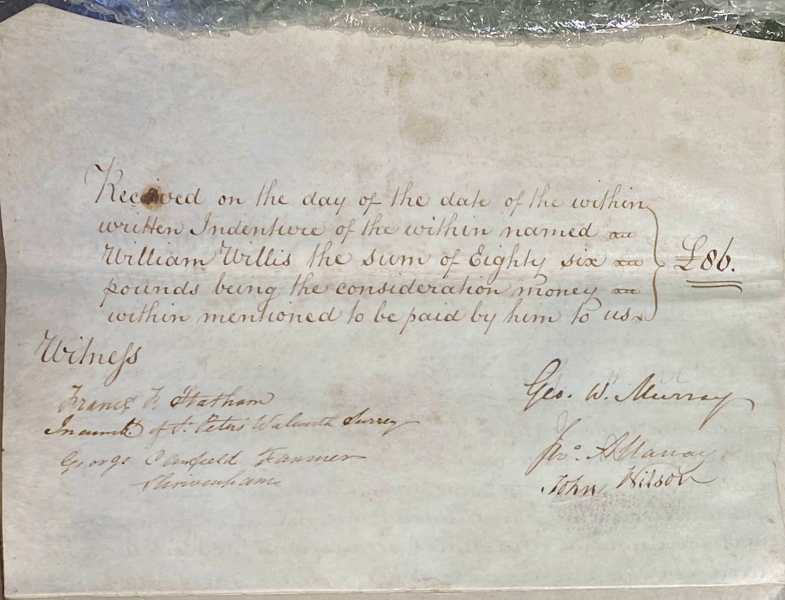 Received on the day of the date of the within
written Indenture of the within named
William Willis the sum of Eighty six
pounds being the consideration money
within mentioned to be paid by him to us
£86.
Witness
Francis F. Statham
Incumbt. of St. Peters Walworth Surrey
George Canfield Farmer
Shrivenham
Geo. W. Murray
Jno.
John Wilson